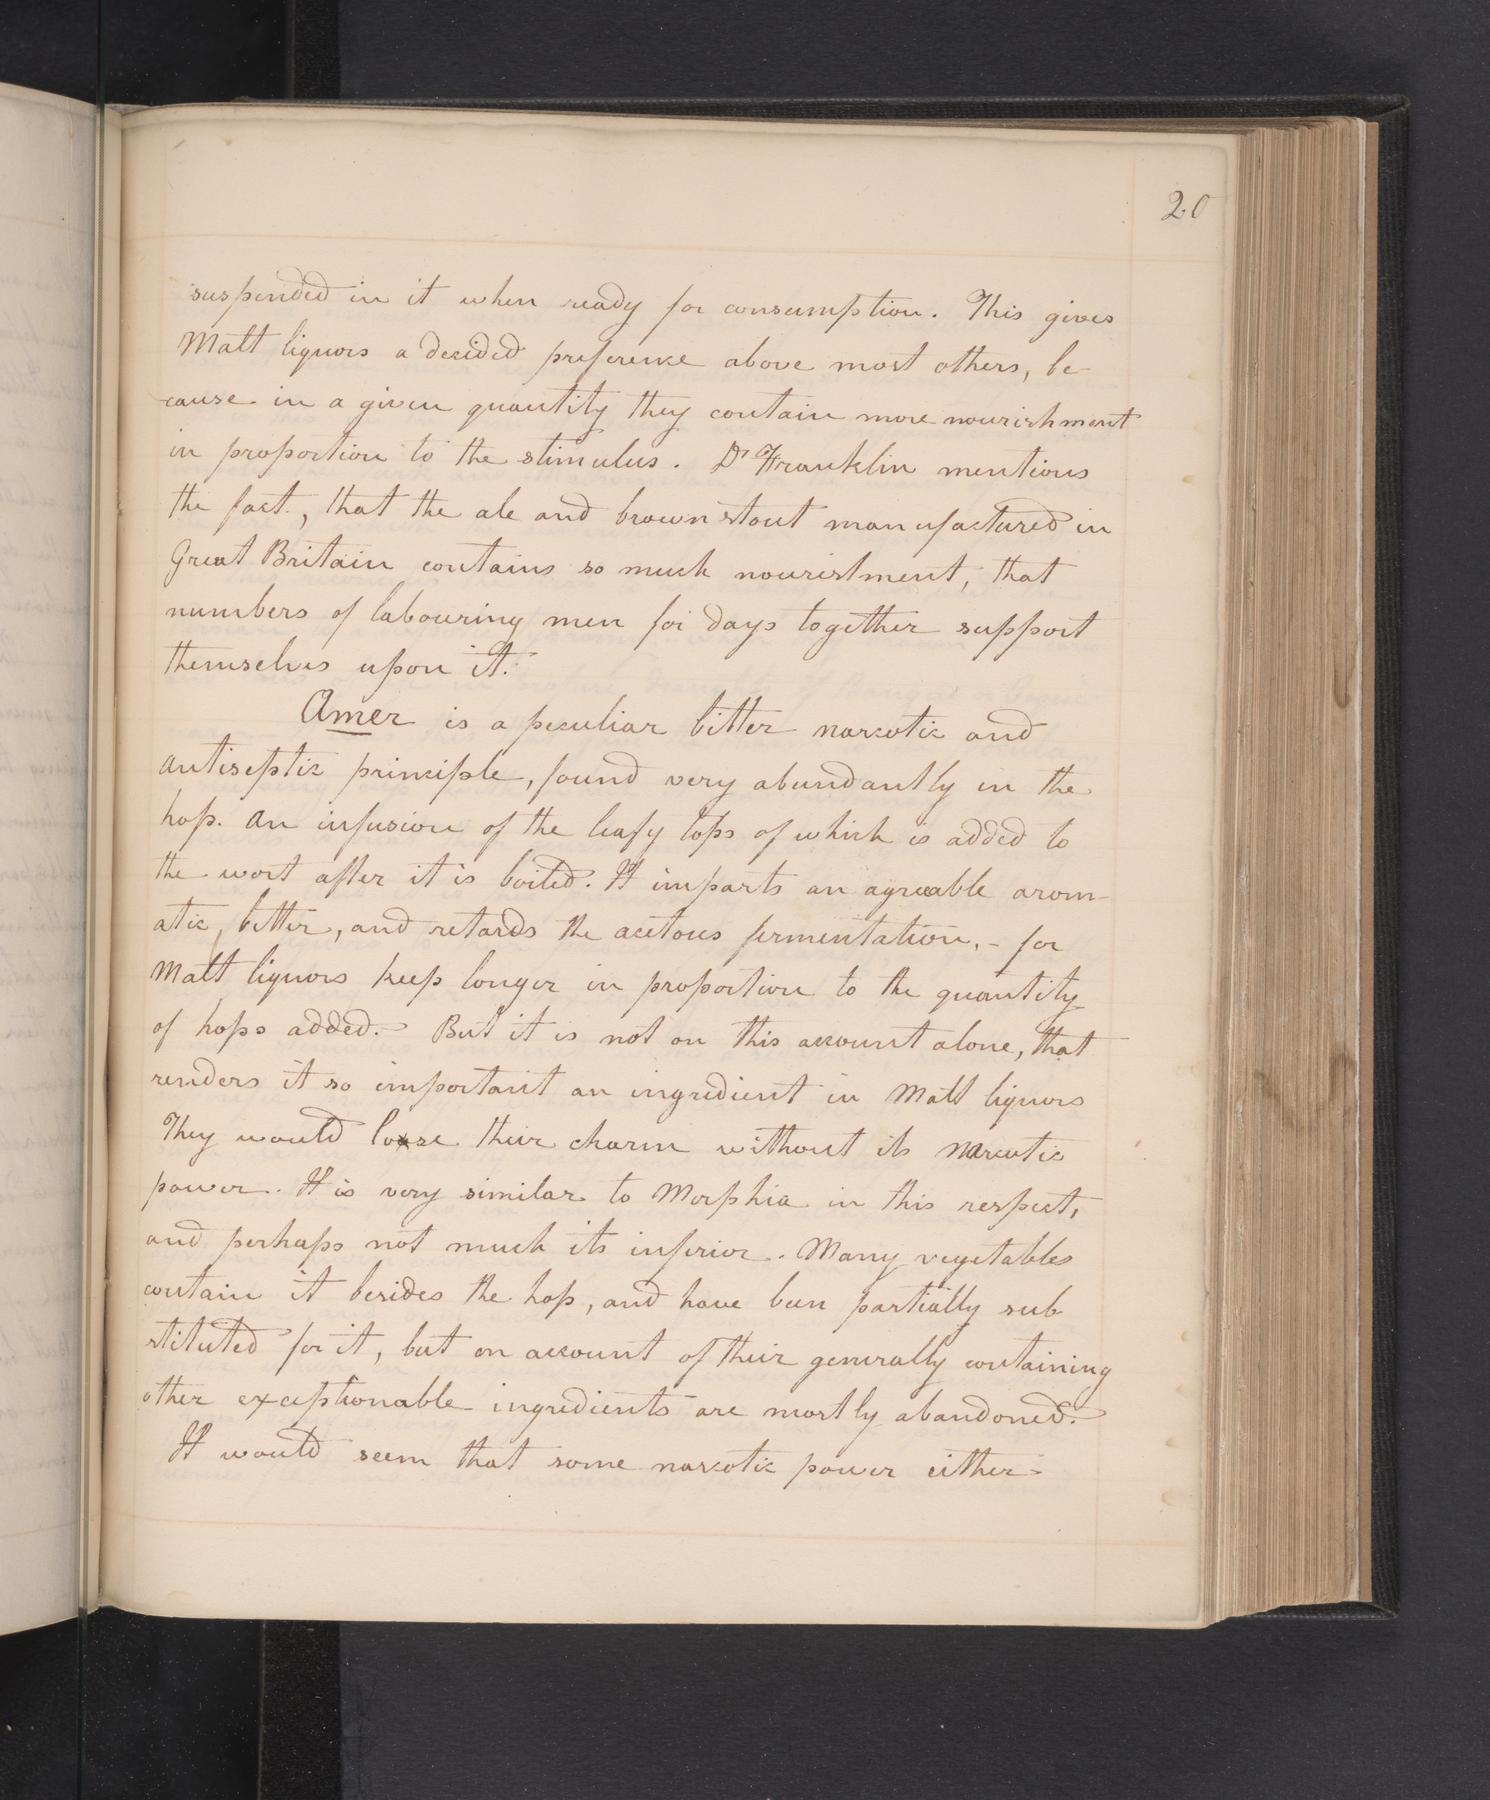 20
suspended in it when ready for consumption. This gives
Malt liquors a decided preference above most others, be-
cause in a given quantity they contain more nourishment
in proportion to the stimulus. Dr Franklin mentions
the fact, that the ale and brown stout manufactured in
Great Britain contains so much nourishment, that
numbers of labouring men for days together support
themselves upon it.
Amer is a peculiar bitter narcotic and
antiseptic principle, found very abundantly in the
hop. An infusion of the leafy tops of which is added to
the wort after it is boiled. It imparts an agreeable arom-
atic, bitter, and retards the acetous fermentation, - for
Malt liquors keep longer in proportion to the quantity
of hops added. But it is not on this account alone, that
renders it so important an ingredient in Malt liquors
They would loose their charm without its narcotic
power. It is very similar to Morphia in this respect,
and perhaps not much its inferior. Many vegetables
contain it besides the hop, and have been partially sub-
stituted for it, but on account of their generally containing
other exceptionable ingredients are mostly abandoned.
It would seem that some narcotic power either